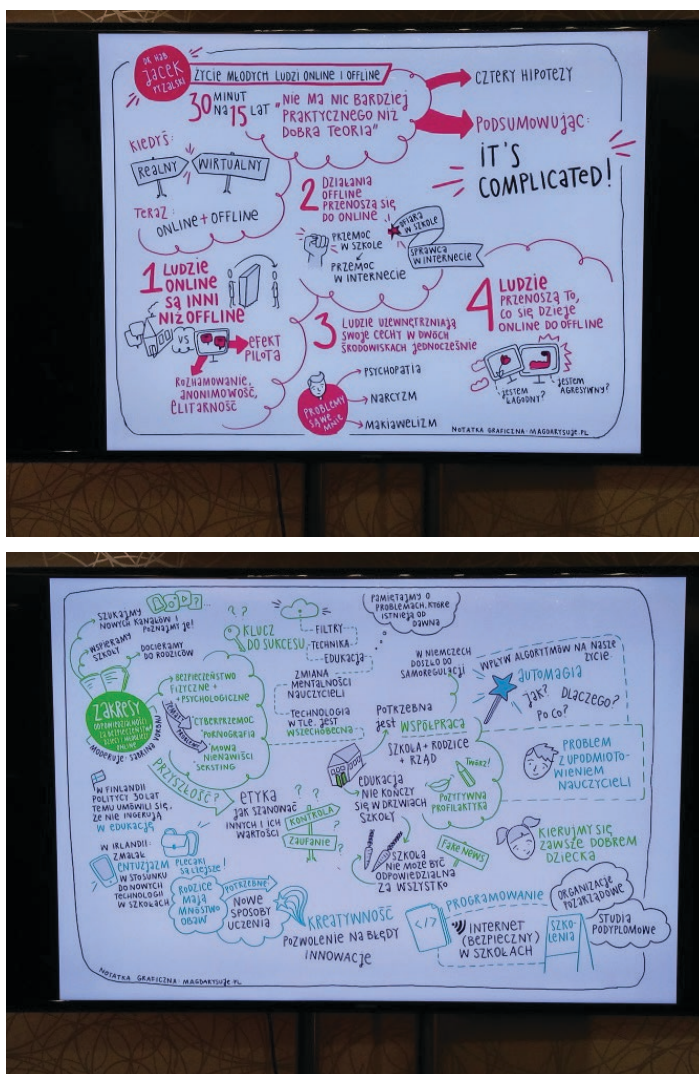 DR HAB.
JACEK
PYŻALSKI
ŻYCIE MŁODYCH LUDZI ONLINE I OFFLINE
30 MINUT
NA 15 LAT
„NIE MA NIC BARDZIEJ
PRAKTYCZNEGO NIŻ
DOBRA TEORIA"
CZTERY HIPOTEZY
PODSUMOWUJĄC:
IT'S
COMPLICATED!
KIEDYŚ:
REALNY
WIRTUALNY
TERAZ:
ONLINE + OFFLINE
1 LUDZIE
ONLINE
SĄ INNI
NIŻ OFFLINE
VS
EFEKT
PILOTA
ROZHAMOWANIE,
ANONIMOWOŚĆ,
ELITARNOŚĆ
2 DZIAŁANIA
OFFLINE
PRZENOSZĄ SIĘ
DO ONLINE
PRZEMOC
W SZKOLE
PRZEMOC
W INTERNECIE
OFIARA
W SZKOLE
SPRAWCA
W INTERNECIE
3 LUDZIE UZEWNĘTRZNIAJĄ
SWOJE CECHY W DWÓCH
ŚRODOWISKACH JEDNOCZEŚNIE
PROBLEMY
SĄ WE
MNIE
PSYCHOPATIA
NARCYZM
MAKIAWELIZM
4 LUDZIE
PRZENOSZĄ TO,
CO SIĘ DZIEJE
ONLINE DO OFFLINE
JESTEM
ŁAGODNY?
JESTEM
AGRESYWNY?
NOTATKA GRAFICZNA - MAGDARYSUJE.PL
SZUKAJMY
NOWYCH KANAŁÓW I
POZNAJMY JE!
WSPIERAMY
SZKOŁY
DOCIERAMY
DO RODZICÓW
ZAKRESY
ODPOWIEDZIALNOŚCI
ZA BEZPIECZEŃSTWO
DZIECI I MŁODZIEŻY
ONLINE
MODERUJE: SABRINA VORBAU
BEZPIECZEŃSTWO
FIZYCZNE +
+ PSYCHOLOGICZNE
TEMATY
PROBLEMY
CYBERPRZEMOC
PORNOGRAFIA
MOWA
NIENAWIŚCI
SEKSTING
? ?
KLUCZ
DO SUKCESU
FILTRY
TECHNIKA
EDUKACJA
ZMIANA
MENTALNOŚCI
NAUCZYCIELI
TECHNOLOGIA
W TLE. JEST
WSZECHOBECNA
PAMIĘTAJMY O
PROBLEMACH, KTÓRE
ISTNIEJĄ OD
DAWNA
W NIEMCZECH
DOSZŁO DO
SAMOREGULACJI
WPŁYW ALGORYTMÓW NA NASZE
ŻYCIE
AUTOMAGIA
JAK?
DLACZEGO?
PO CO?
POTRZEBNA
JEST WSPÓŁPRACA
SZKOŁA + RODZICE
+ RZĄD
PROBLEM
Z UPODMIOTO-
WIENIEM
NAUCZYCIELI
PRZYSZŁOŚĆ?
W FINLANDII
POLITYCY 30 LAT
TEMU UMÓWILI SIĘ,
ŻE NIE INGERUJĄ
W EDUKACJĘ
ETYKA
JAK SZANOWAĆ
INNYCH I ICH
WARTOŚCI
? ? ?
KONTROLA
ZAUFANIE
EDUKACJA
NIE KOŃCZY
SIĘ W DRZWIACH
SZKOŁY
TWÓRZ!
POZYTYWNA
PROFILAKTYKA
SZKOŁA
NIE MOŻE BYĆ
ODPOWIEDZIALNA
ZA WSZYSTKO
FAKE NEWS
KIERUJMY SIĘ
ZAWSZE DOBREM
DZIECKA
W IRLANDII:
ZMALAŁ
ENTUZJAZM
W STOSUNKU
DO NOWYCH
TECHNOLOGII
W SZKOŁACH
PLECAKI
SĄ LŻEJSZE!
RODZICE
MAJĄ
MNÓSTWO
OBAW
POTRZEBNE
NOWE
SPOSOBY
UCZENIA
KREATYWNOŚĆ
POZWOLENIE NA BŁĘDY
INNOWACJE
PROGRAMOWANIE
</>
INTERNET
(BEZPIECZNY)
W SZKOŁACH
SZKO-
LENIA
ORGANIZACJE
POZARZĄDOWE
STUDIA
PODYPLOMOWE
NOTATKA GRAFICZNA - MAGDARYSUJE.PL